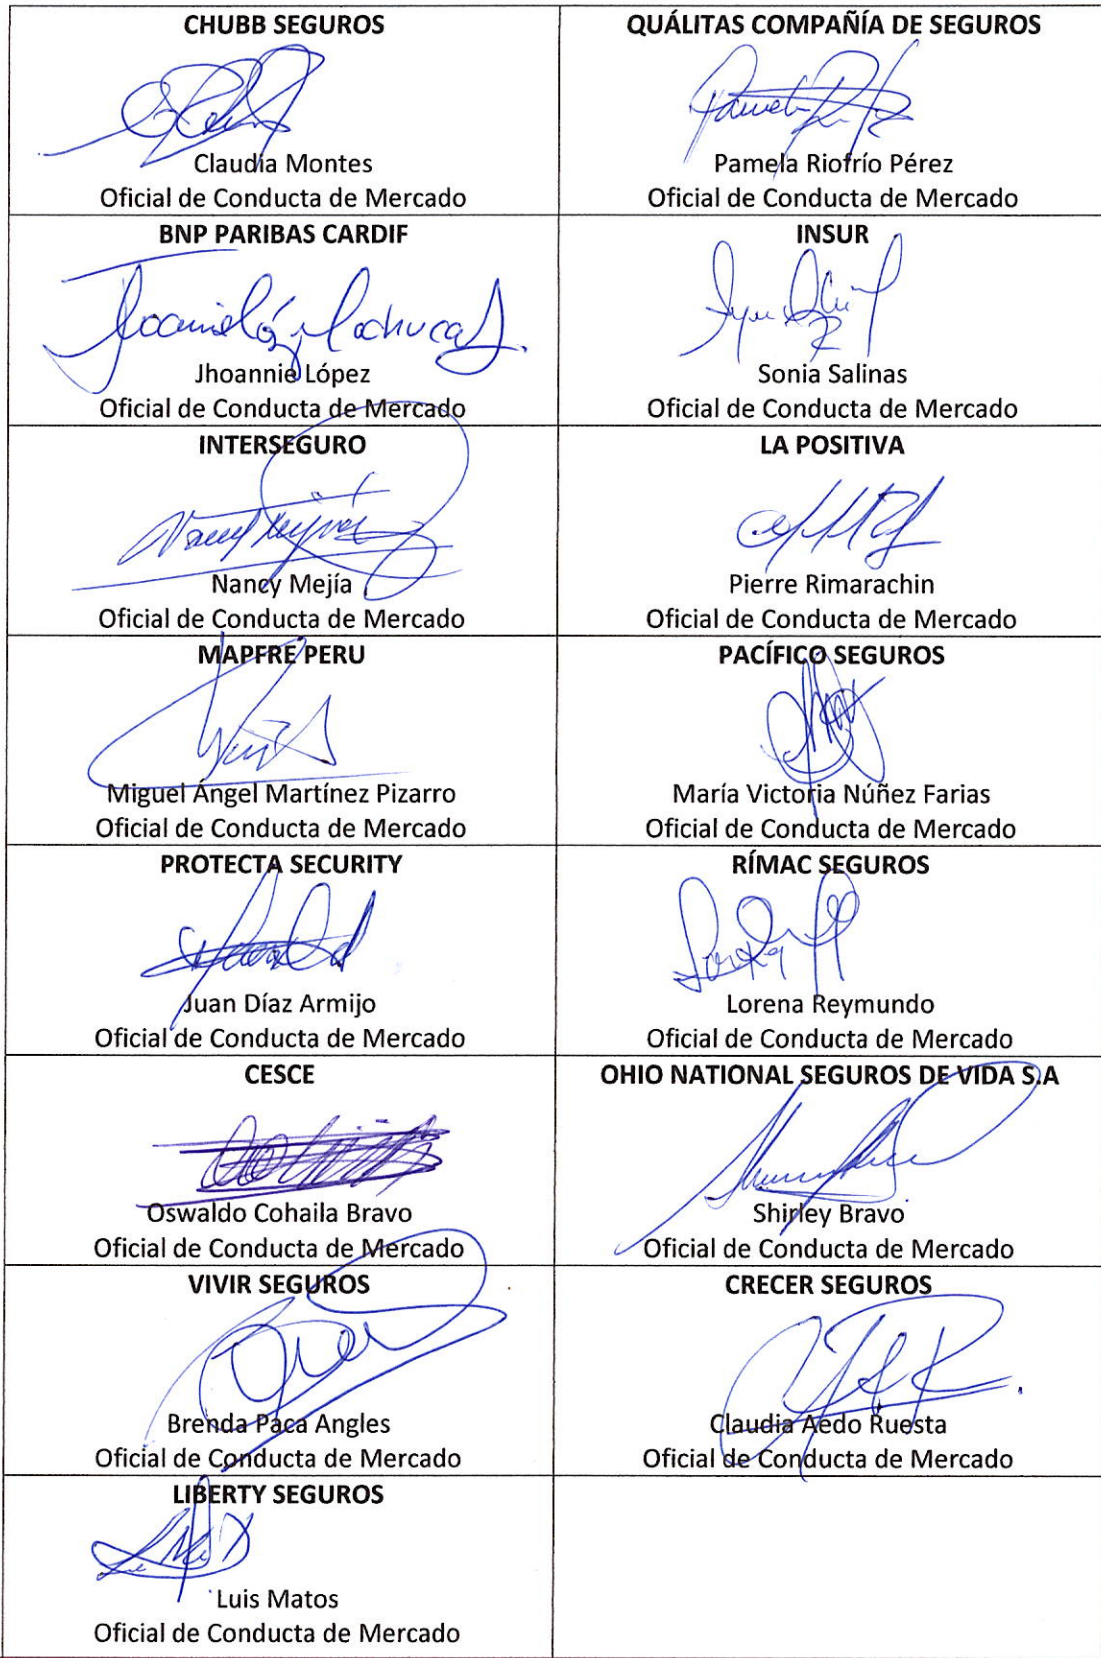 CHUBB SEGUROS
Claudia Montes
Oficial de Conducta de Mercado
QUÁLITAS COMPAÑÍA DE SEGUROS
Pamela Riofrío Pérez
Oficial de Conducta de Mercado
BNP PARIBAS CARDIF
Jhoannie López
Oficial de Conducta de Mercado
INSUR
Sonia Salinas
Oficial de Conducta de Mercado
INTERSEGURO
Nancy Mejía
Oficial de Conducta de Mercado
LA POSITIVA
Pierre Rimarachin
Oficial de Conducta de Mercado
MAPFRE PERU
Miguel Ángel Martínez Pizarro
Oficial de Conducta de Mercado
PACÍFICO SEGUROS
María Victoria Núñez Farias
Oficial de Conducta de Mercado
PROTECTA SECURITY
Juan Díaz Armijo
Oficial de Conducta de Mercado
RÍMAC SEGUROS
Lorena Reymundo
Oficial de Conducta de Mercado
CESCE
Oswaldo Cohaila Bravo
Oficial de Conducta de Mercado
OHIO NATIONAL SEGUROS DE VIDA S.A
Shirley Bravo
Oficial de Conducta de Mercado
VIVIR SEGUROS
Brenda Paca Angles
Oficial de Conducta de Mercado
CRECER SEGUROS
Claudia Aedo Ruesta
Oficial de Conducta de Mercado
LIBERTY SEGUROS
Luis Matos
Oficial de Conducta de Mercado